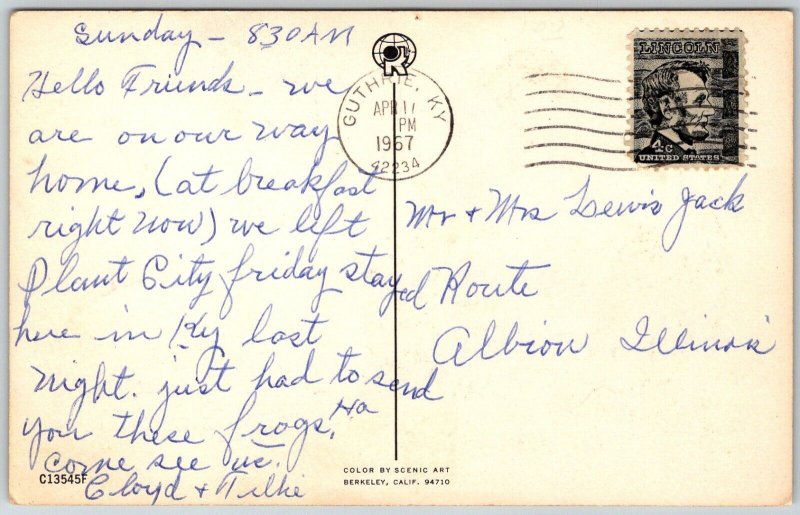 Sunday - 830 AM
Hello Friends - we
are on our way
home, (at breakfast
right now) we left
Plant City friday stayed
here in Ky last
night. just had to send
you these frogs, Ha
Come see us.
Cloyd & Tillie
C13545F
R
GUTHRIE, KY
APR 17
PM
1967
42234
LINCOLN
4c
UNITED STATES
Mr & Mrs Lewis Jack
Route
Albion Illinois
COLOR BY SCENIC ART
BERKELEY, CALIF. 94710